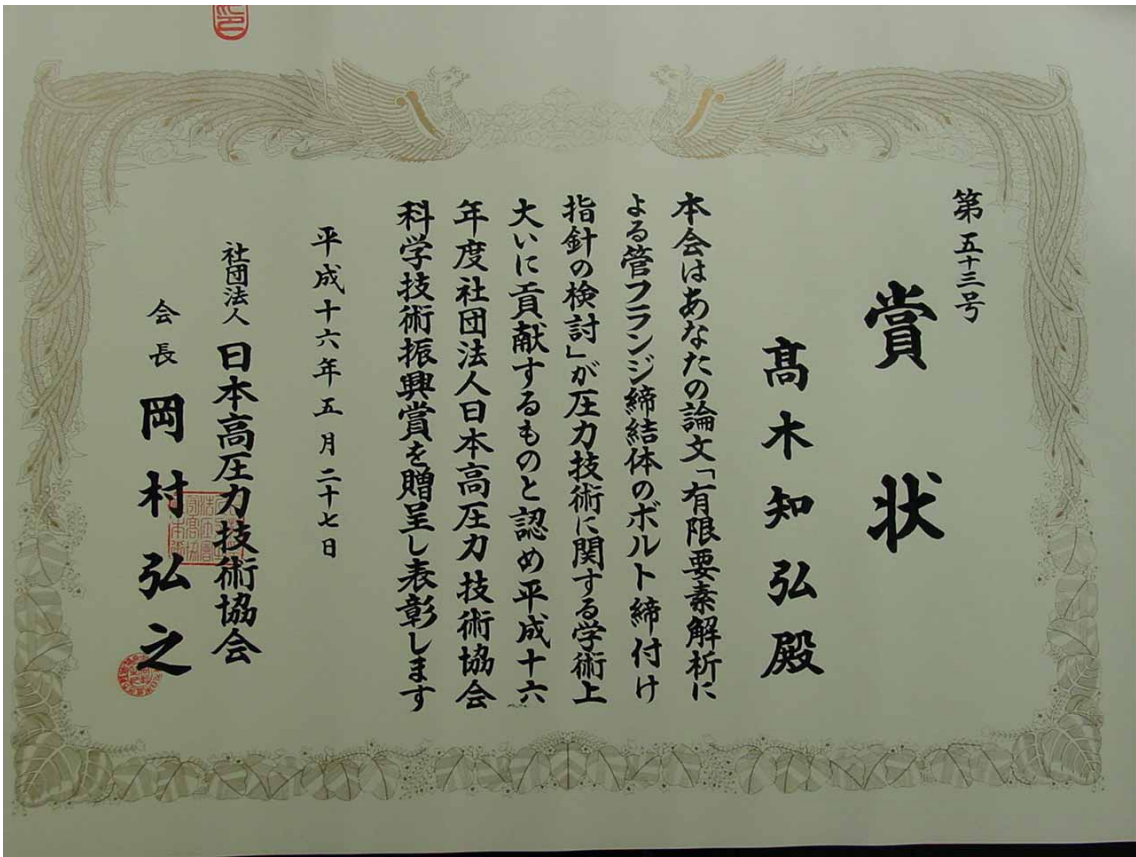 第五十三号
賞状
髙木知弘殿
本会はあなたの論文「有限要素解析に
よる管フランジ締結体のボルト締付け
指針の検討」が圧力技術に関する学術上
大いに貢献するものと認め平成十六
年度社団法人日本高圧力技術協会
科学技術振興賞を贈呈し表彰します
平成十六年五月二十七日
社団法人 日本高圧力技術協会
会長 岡村弘之